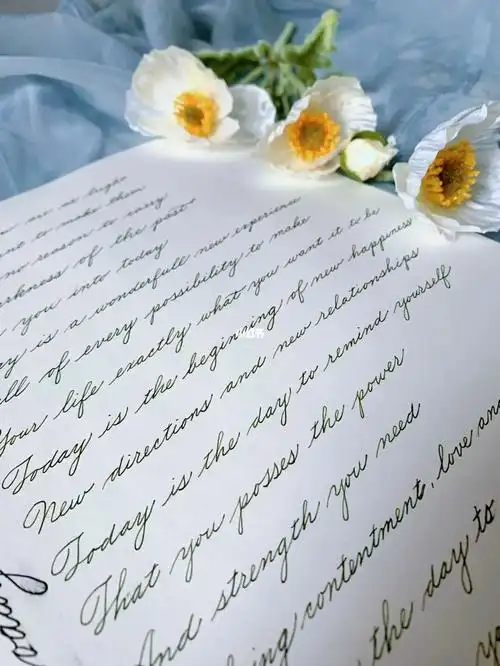 as bright
to make them
no reason to carry
darkness of the past
you into today
is a wonderfull new experience
of every possibility to make
Your life exactly what you want it to be
Today is the beginning of new happiness
New directions and new relationships
Today is the day to remind yourself
That you posses the power
And strength you need
contentment, love and
the day to
Today